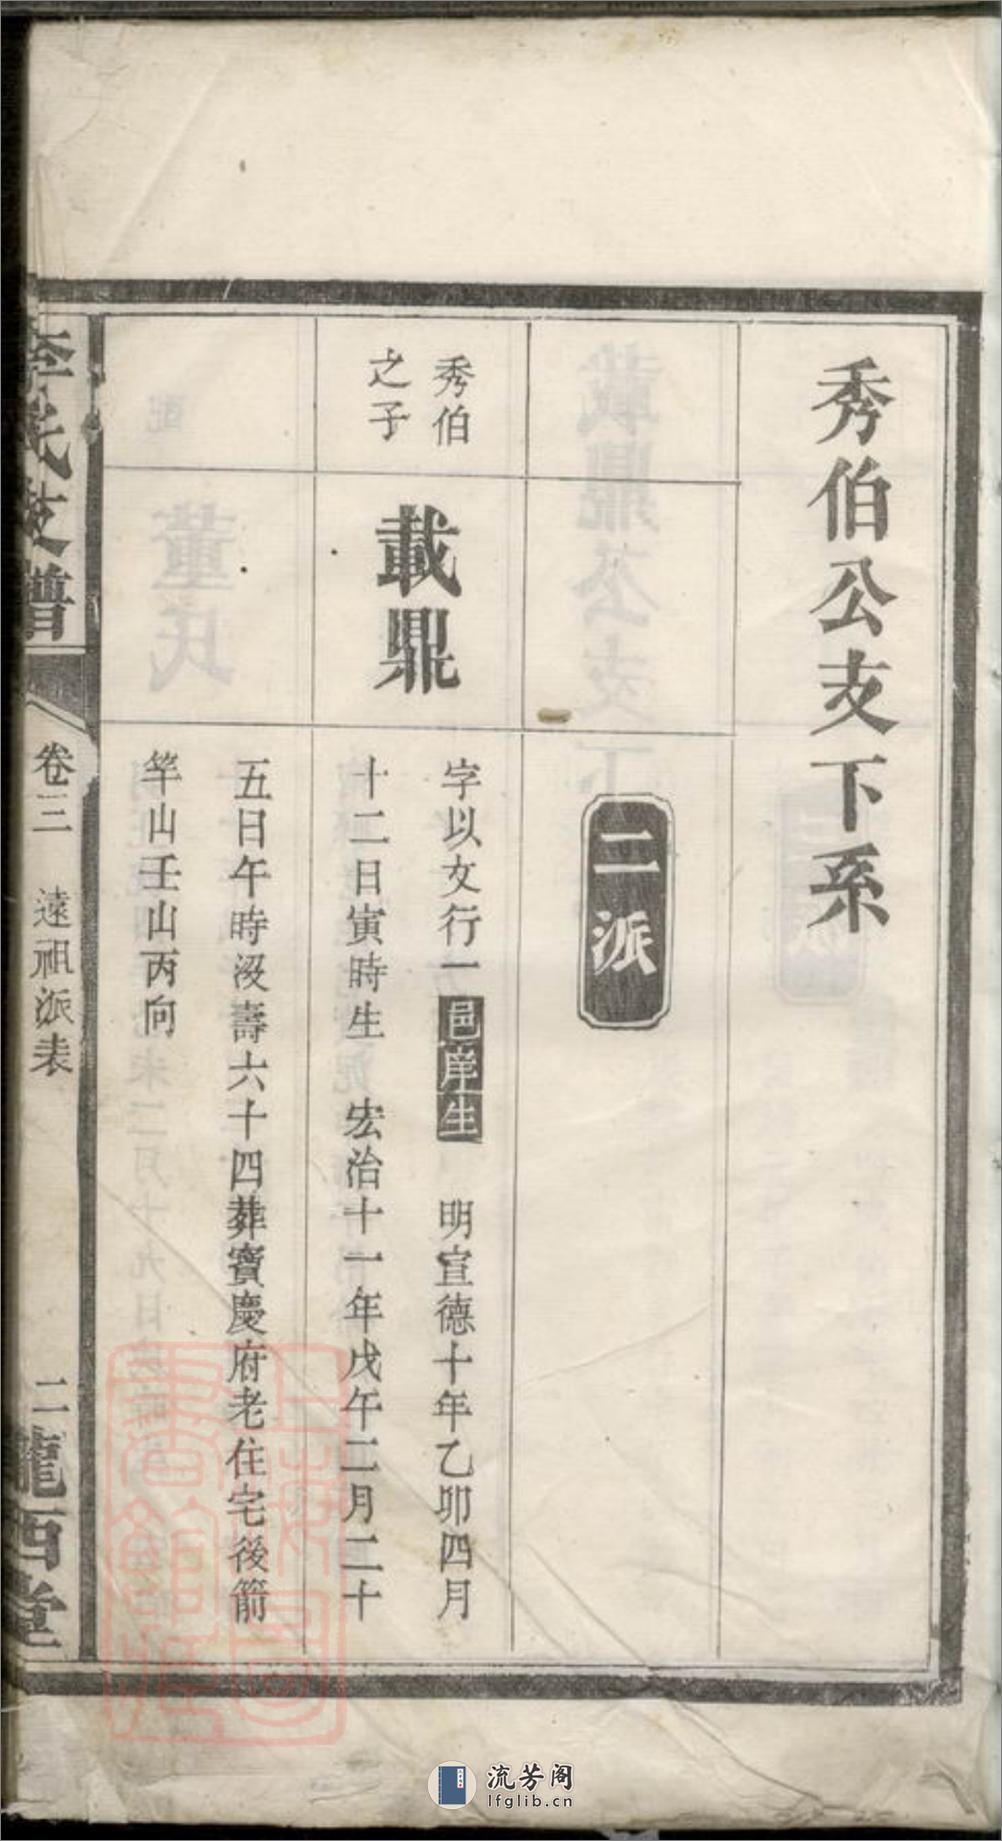 秀伯公支下系
二派
秀伯
之子
載鼎
字以文行一邑庠生 明宣德十年乙卯四月
十二日寅時生 宏治十一年戊午二月二十
五日午時沒壽六十四葬寶慶府老住宅後箭
竿山壬山丙向
李氏支譜
卷三 遠祖派表
二
隴西堂
流芳阁
lfglib.cn